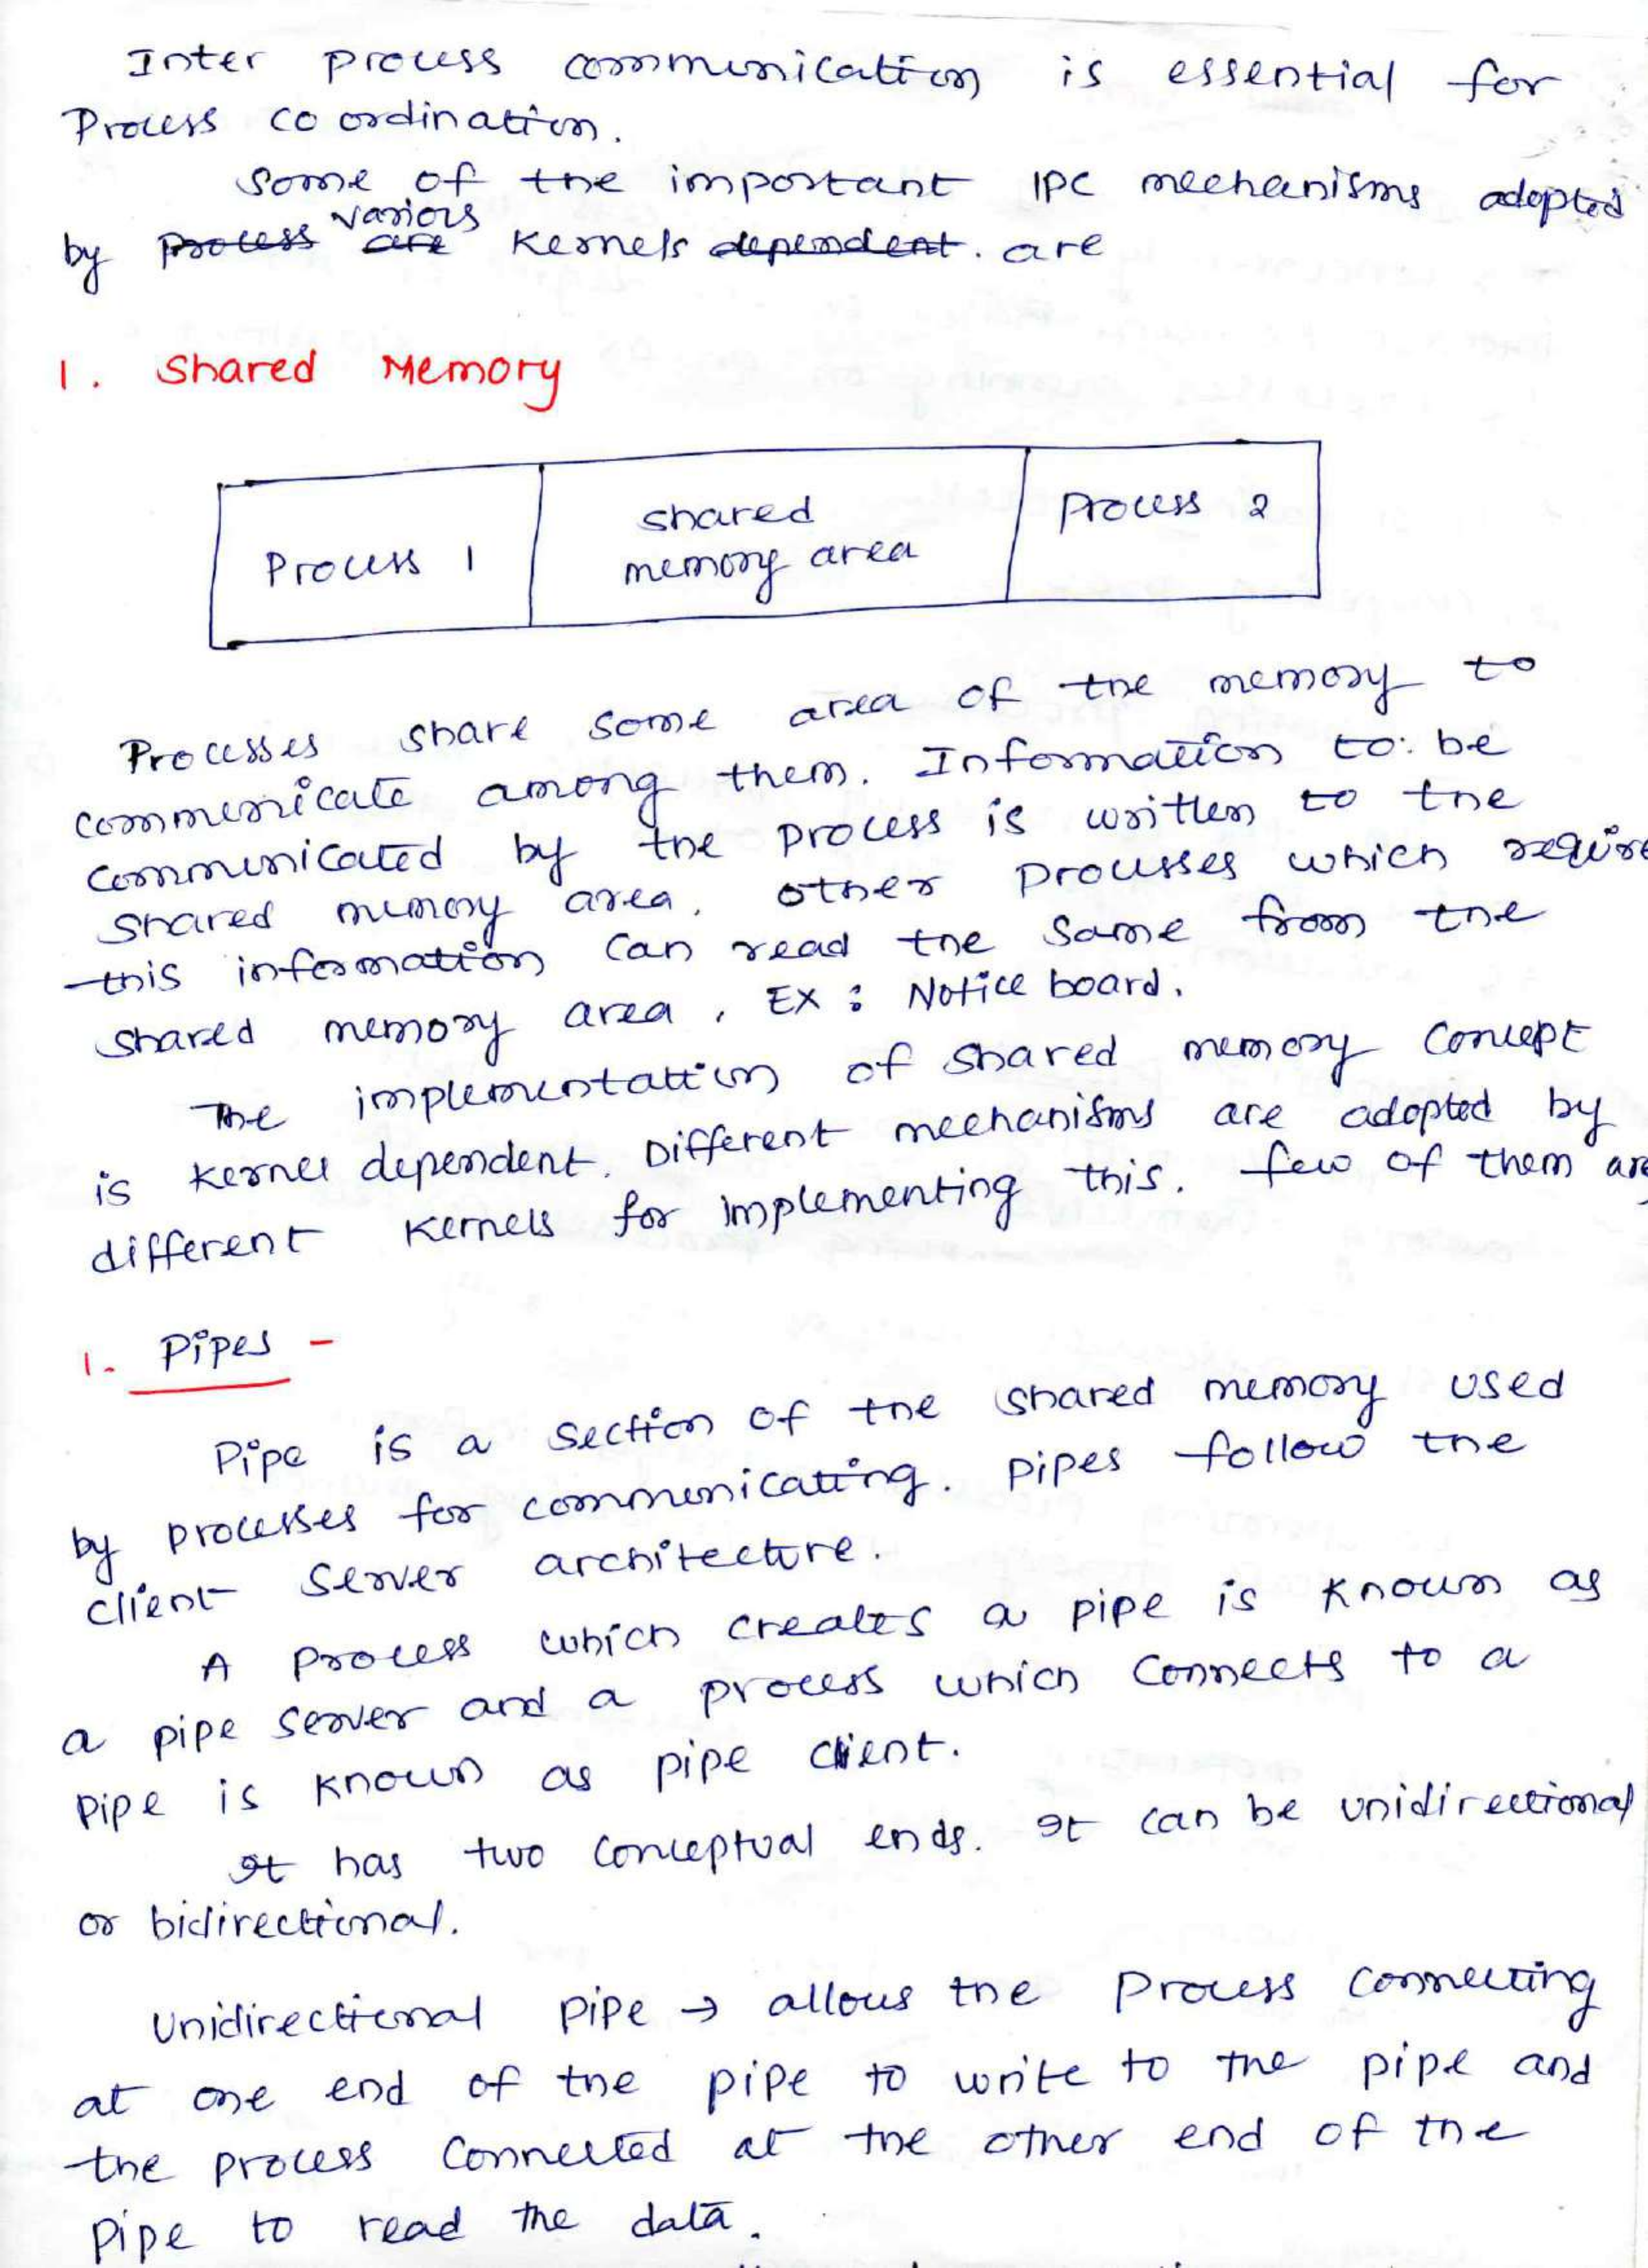 Inter process communication is essential for
Process coordination.
Some of the important IPC mechanisms adopted
various
by process are Kernels dependent. are
1. Shared Memory
Process 1
shared
memory area
Process 2
Processes share some area of the memory to
communicate among them. Information to be
communicated by the process is written to the
shared memory area. other processes which require
this information can read the same from the
shared memory area. EX: Notice board.
The implementation of shared memory concept
is kernel dependent. Different mechanisms are adopted by
different kernels for implementing this. few of them are
1. Pipes -
Pipe is a section of the shared memory used
by processes for communicating. pipes follow the
client server architecture.
A process which creates a pipe is known as
a pipe server and a process which connects to a
pipe is known as pipe client.
It has two conceptual ends. It can be unidirectional
or bidirectional.
Unidirectional pipe → allows the process connecting
at one end of the pipe to write to the pipe and
the process connected at the other end of the
pipe to read the data.